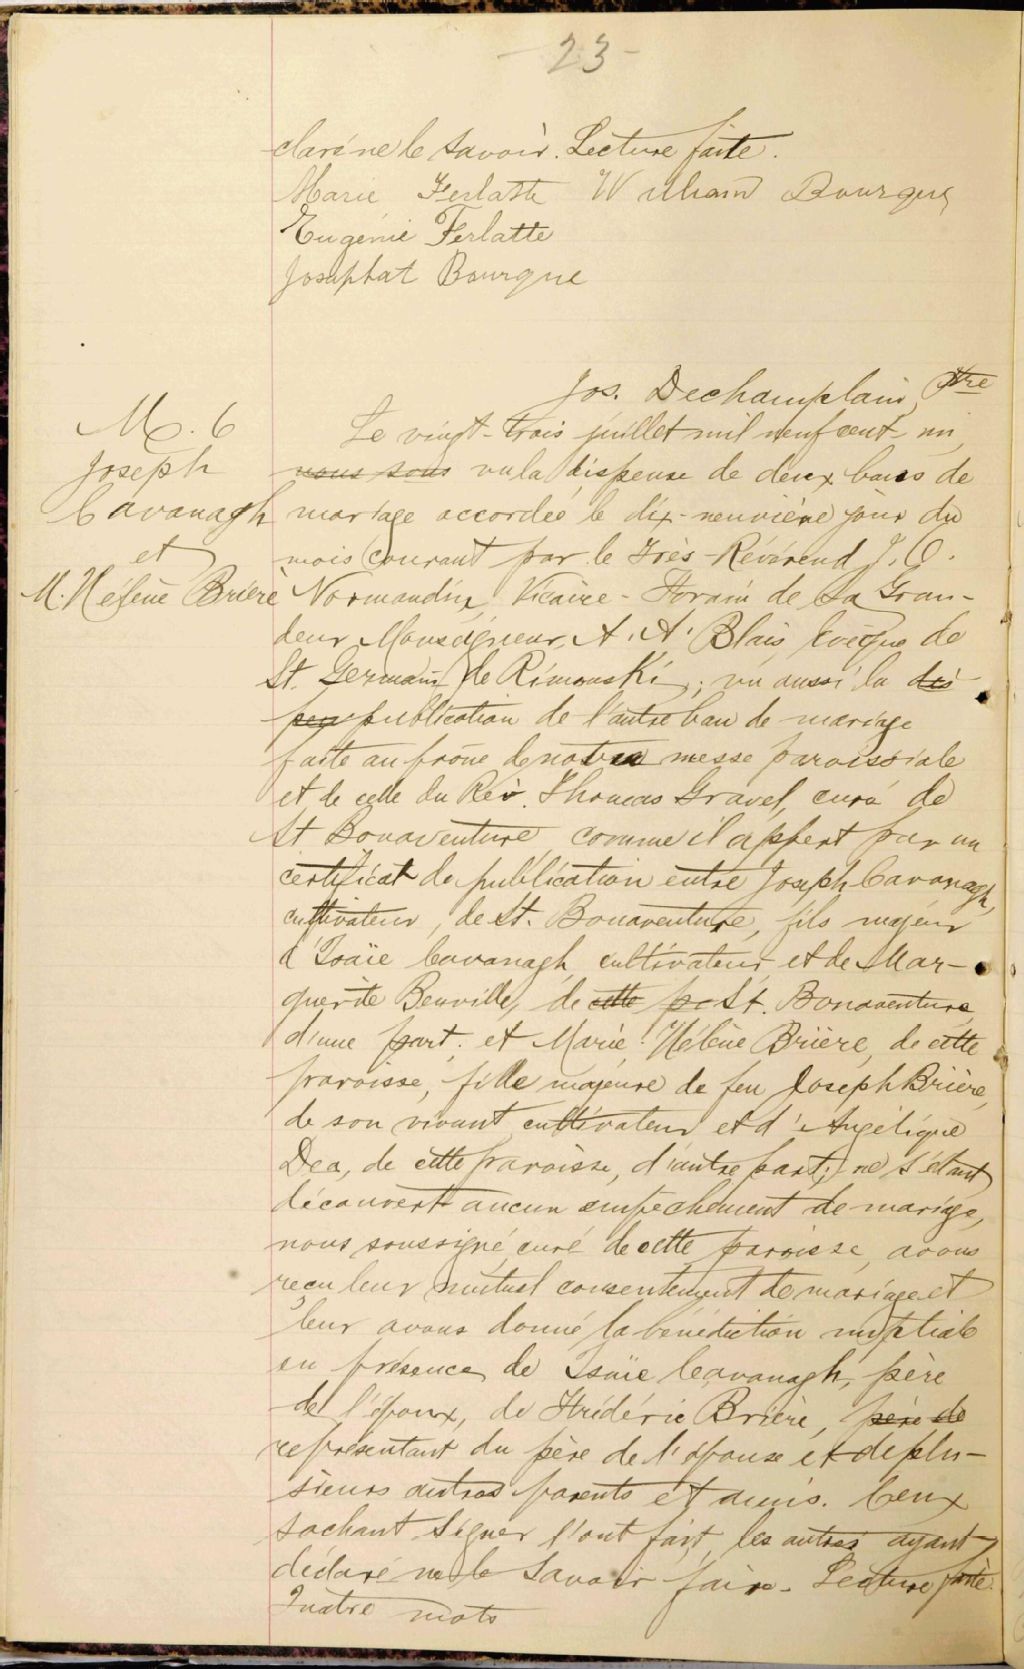 - 23 -
claré ne le savoir. Lecture faite.
Marie Ferlatte William Bourque
Eugénie Ferlatte
Josaphat Bourque
Jos. Dechamplain, Ptre
M. 6
Joseph
Cavanagh
et
M. Hélène Brière
Le vingt-trois juillet mil neuf cent un,
nous sous vu la dispense de deux bans de
mariage accordée le dix-neuvième jour du
mois courant par le Très-Révérend J. O.
Normandin, Vicaire-Forain de Sa Gran-
deur Monseigneur A. A. Blais, Evêque de
St. Germain de Rimouski; vu aussi la dis
pen publication de l'autre ban de mariage
faite au prône de notre messe paroissiale
et de celle du Rév. Thomas Gravel, curé de
St Bonaventure comme il appert par un
certificat de publication entre Joseph Cavanagh,
cultivateur, de St. Bonaventure, fils majeur
d'Isaïe Cavanagh, cultivateur et de Mar-
guerite Benville, de cette p St. Bonaventure,
d'une part; et Marie-Hélène Brière, de cette
paroisse, fille majeure de feu Joseph Brière,
de son vivant cultivateur et d'Angélique
Dea, de cette paroisse, d'autre part; ne s'étant
découvert aucun empêchement de mariage,
nous soussigné, curé de cette paroisse, avons
reçu leur mutuel consentement de mariage et
leur avons donné la bénédiction nuptiale
en présence de Isaïe Cavanagh, père
de l'époux, de Frédéric Brière, père de
représentant du père de l'épouse et de plu-
sieurs autres parents et amis. Ceux
sachant signer l'ont fait, les autres ayant
déclaré ne le savoir faire. Lecture faite.
Quatre mots